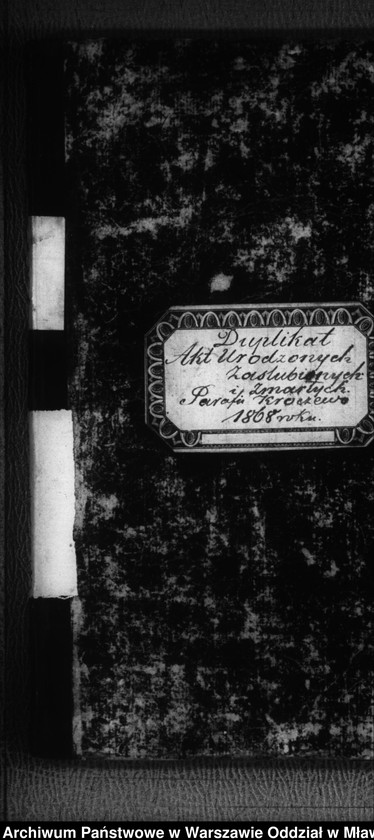 Duplikat
Akt Urodzonych
Zaslubionych
i Zmarłych
Parafii Kroczewo
1868 roku.
Archiwum Państwowe w Warszawie Oddział w Mław